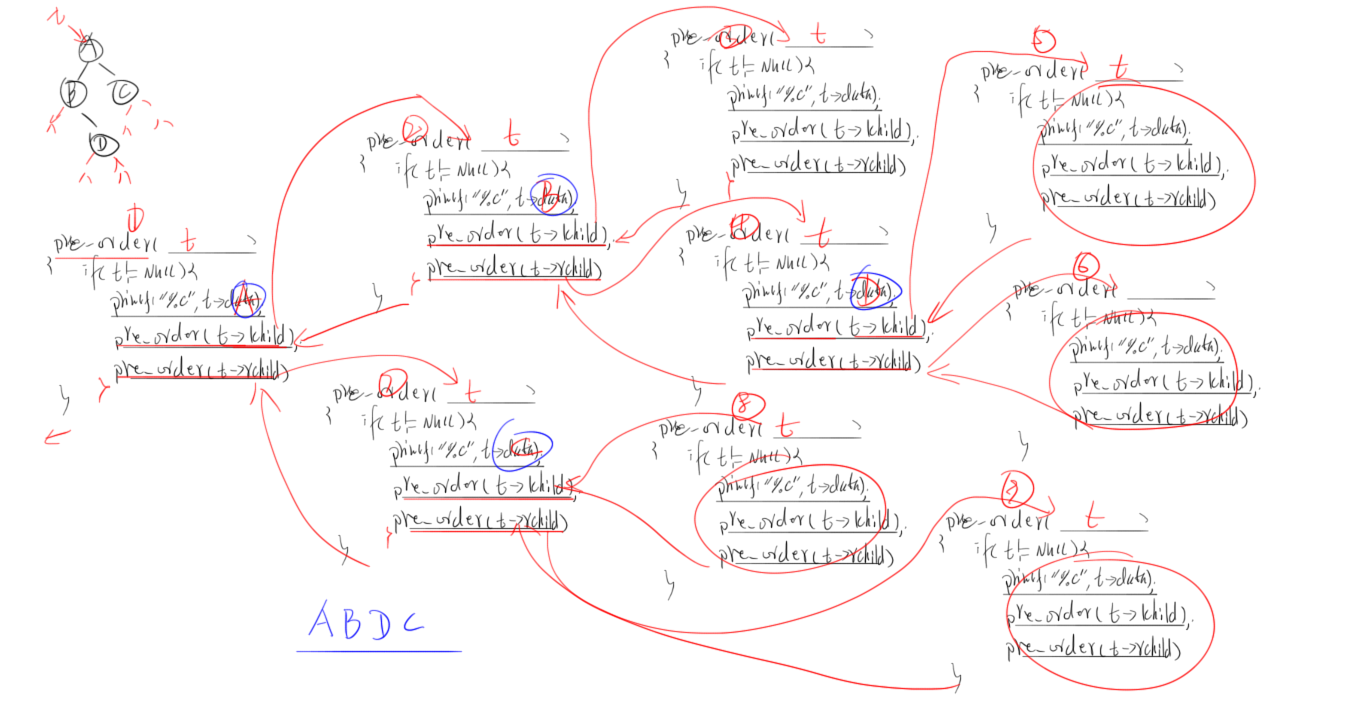 A
B
C
D
①
pre_order( t )
{
if( t != NULL){
printf("%c", t→data);
A
pre_order( t → lchild);
pre_order( t→rchild)
}
}
②
pre_order( t )
{
if( t != NULL){
printf("%c", t→data);
B
pre_order( t → lchild);
pre_order( t→rchild)
}
}
③
pre_order( t )
{
if( t != NULL){
printf("%c", t→data);
pre_order( t → lchild);
pre_order( t→rchild)
}
}
④
pre_order( t )
{
if( t != NULL){
printf("%c", t→data);
D
pre_order( t → lchild);
pre_order( t→rchild)
}
}
⑤
pre_order( t )
{
if( t != NULL){
printf("%c", t→data);
pre_order( t → lchild);
pre_order( t→rchild)
}
⑥
pre_order( )
{
if( t != NULL){
printf("%c", t→data);
pre_order( t → lchild);
pre_order( t→rchild)
}
pre_order( t )
{
if( t != NULL){
printf("%c", t→data);
C
pre_order( t → lchild);
pre_order( t→rchild)
}
}
⑧
pre_order( t )
{
if( t != NULL){
printf("%c", t→data);
pre_order( t → lchild);
pre_order( t→rchild)
}
pre_order( t )
{
if( t != NULL){
printf("%c", t→data);
pre_order( t → lchild);
pre_order( t→rchild)
}
A B D C